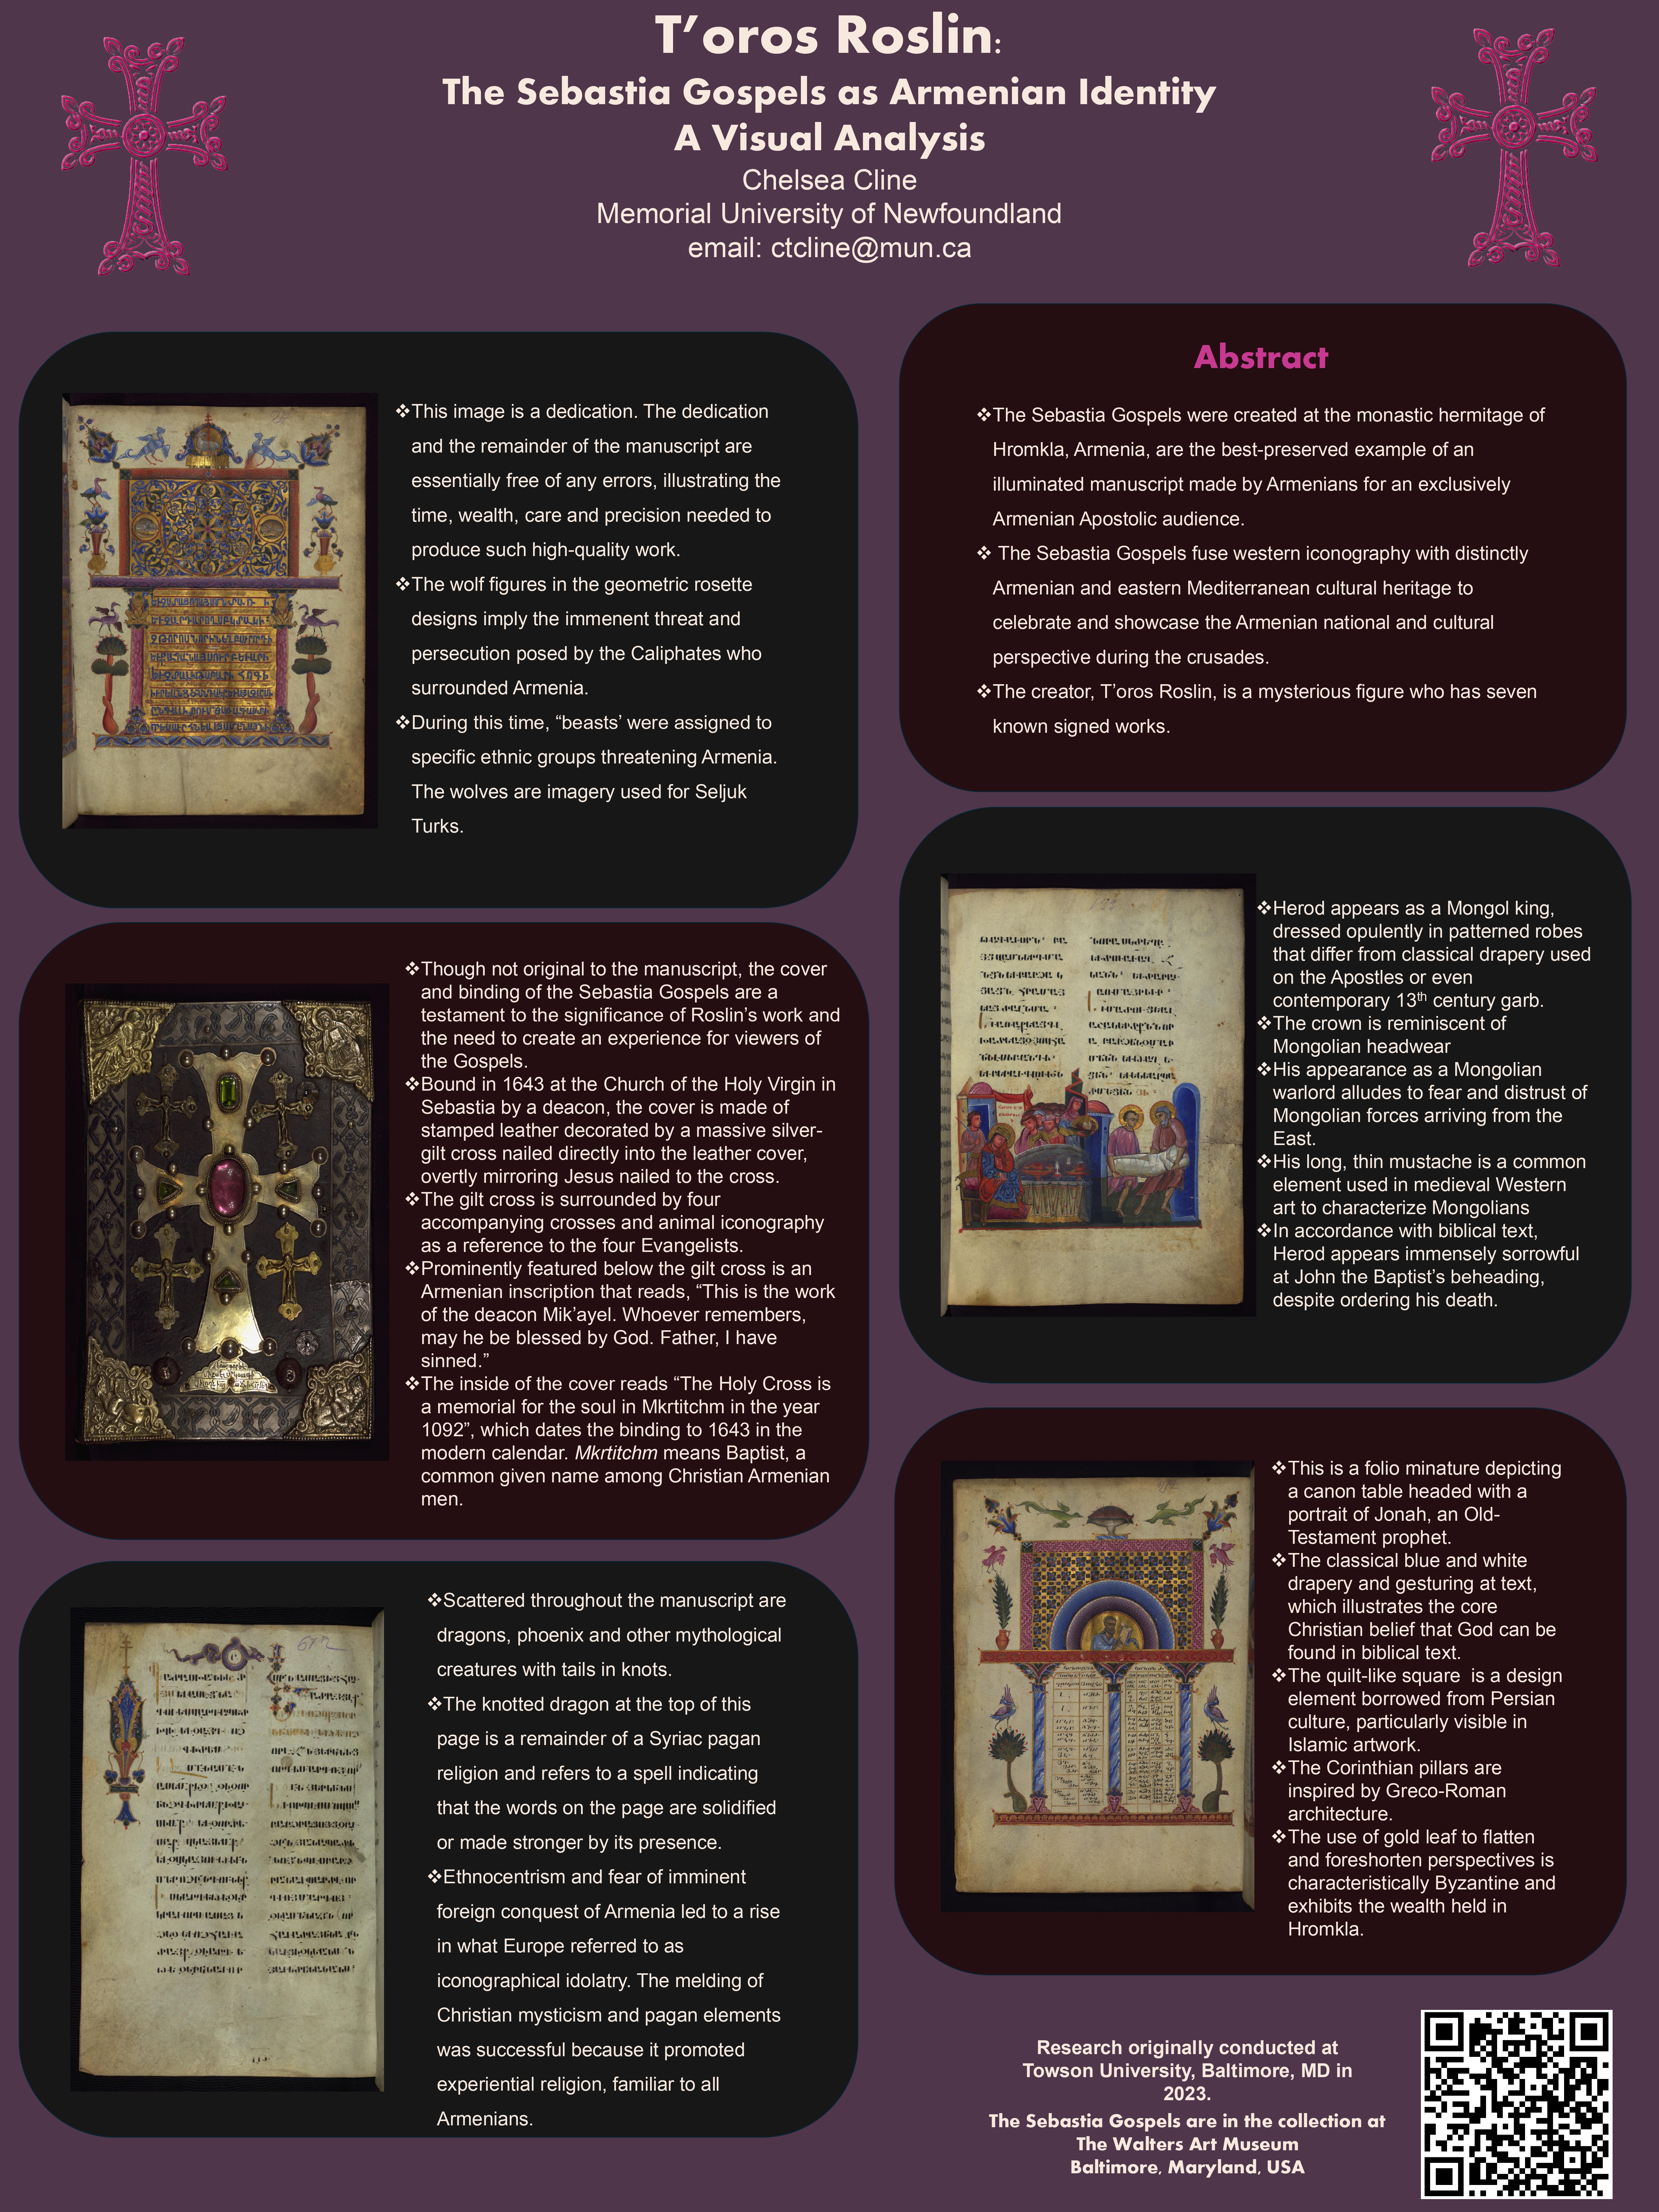 T’oros Roslin:
The Sebastia Gospels as Armenian Identity
A Visual Analysis
Chelsea Cline
Memorial University of Newfoundland
email: ctcline@mun.ca
❖This image is a dedication. The dedication
and the remainder of the manuscript are
essentially free of any errors, illustrating the
time, wealth, care and precision needed to
produce such high-quality work.
❖The wolf figures in the geometric rosette
designs imply the immenent threat and
persecution posed by the Caliphates who
surrounded Armenia.
❖During this time, “beasts’ were assigned to
specific ethnic groups threatening Armenia.
The wolves are imagery used for Seljuk
Turks.
❖Though not original to the manuscript, the cover
and binding of the Sebastia Gospels are a
testament to the significance of Roslin’s work and
the need to create an experience for viewers of
the Gospels.
❖Bound in 1643 at the Church of the Holy Virgin in
Sebastia by a deacon, the cover is made of
stamped leather decorated by a massive silver-
gilt cross nailed directly into the leather cover,
overtly mirroring Jesus nailed to the cross.
❖The gilt cross is surrounded by four
accompanying crosses and animal iconography
as a reference to the four Evangelists.
❖Prominently featured below the gilt cross is an
Armenian inscription that reads, “This is the work
of the deacon Mik’ayel. Whoever remembers,
may he be blessed by God. Father, I have
sinned.”
❖The inside of the cover reads “The Holy Cross is
a memorial for the soul in Mkrtitchm in the year
1092”, which dates the binding to 1643 in the
modern calendar. Mkrtitchm means Baptist, a
common given name among Christian Armenian
men.
❖Scattered throughout the manuscript are
dragons, phoenix and other mythological
creatures with tails in knots.
❖The knotted dragon at the top of this
page is a remainder of a Syriac pagan
religion and refers to a spell indicating
that the words on the page are solidified
or made stronger by its presence.
❖Ethnocentrism and fear of imminent
foreign conquest of Armenia led to a rise
in what Europe referred to as
iconographical idolatry. The melding of
Christian mysticism and pagan elements
was successful because it promoted
experiential religion, familiar to all
Armenians.
Abstract
❖The Sebastia Gospels were created at the monastic hermitage of
Hromkla, Armenia, are the best-preserved example of an
illuminated manuscript made by Armenians for an exclusively
Armenian Apostolic audience.
❖ The Sebastia Gospels fuse western iconography with distinctly
Armenian and eastern Mediterranean cultural heritage to
celebrate and showcase the Armenian national and cultural
perspective during the crusades.
❖The creator, T’oros Roslin, is a mysterious figure who has seven
known signed works.
❖Herod appears as a Mongol king,
dressed opulently in patterned robes
that differ from classical drapery used
on the Apostles or even
contemporary 13th century garb.
❖The crown is reminiscent of
Mongolian headwear
❖His appearance as a Mongolian
warlord alludes to fear and distrust of
Mongolian forces arriving from the
East.
❖His long, thin mustache is a common
element used in medieval Western
art to characterize Mongolians
❖In accordance with biblical text,
Herod appears immensely sorrowful
at John the Baptist’s beheading,
despite ordering his death.
❖This is a folio minature depicting
a canon table headed with a
portrait of Jonah, an Old-
Testament prophet.
❖The classical blue and white
drapery and gesturing at text,
which illustrates the core
Christian belief that God can be
found in biblical text.
❖The quilt-like square  is a design
element borrowed from Persian
culture, particularly visible in
Islamic artwork.
❖The Corinthian pillars are
inspired by Greco-Roman
architecture.
❖The use of gold leaf to flatten
and foreshorten perspectives is
characteristically Byzantine and
exhibits the wealth held in
Hromkla.
Research originally conducted at
Towson University, Baltimore, MD in
2023.
The Sebastia Gospels are in the collection at
The Walters Art Museum
Baltimore, Maryland, USA